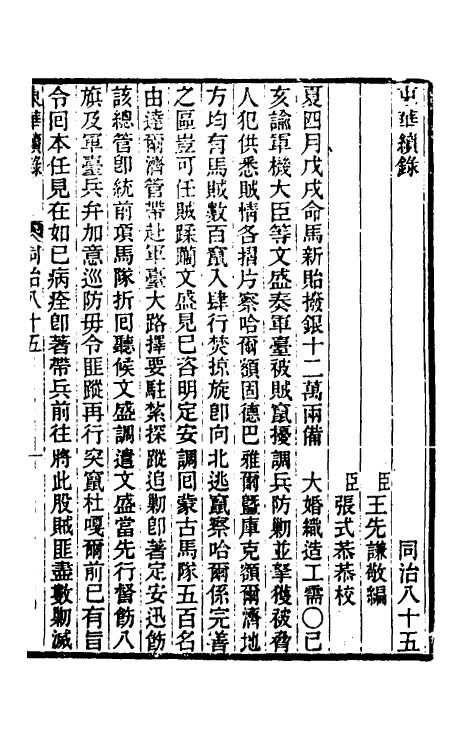 東華續錄 同治八十五
臣王先謙敬編
臣張式恭恭校
夏四月戊戌命馬新貽撥銀十二萬兩備 大婚織造工需○己
亥諭軍機大臣等文盛奏軍臺被賊竄擾調兵防勦並拏獲被脅
人犯供悉賊情各摺片察哈爾額固德巴雅爾曁庫克額爾濟地
方均有馬賊數百竄入肆行焚掠旋卽向北逃竄察哈爾係完善
之區豈可任賊蹂躪文盛見已咨明定安調回蒙古馬隊五百名
由達爾濟管帶赴軍臺大路擇要駐紮探蹤追勦卽著定安迅飭
該總管卽統前項馬隊折回聽候文盛調遣文盛當先行督飭八
旗及軍臺兵弁加意巡防毋令匪蹤再行突竄杜嘎爾前已有旨
令回本任見在如已病痊卽著帶兵前往將此股賊匪盡數勦滅
東華續錄 同治八十五 一